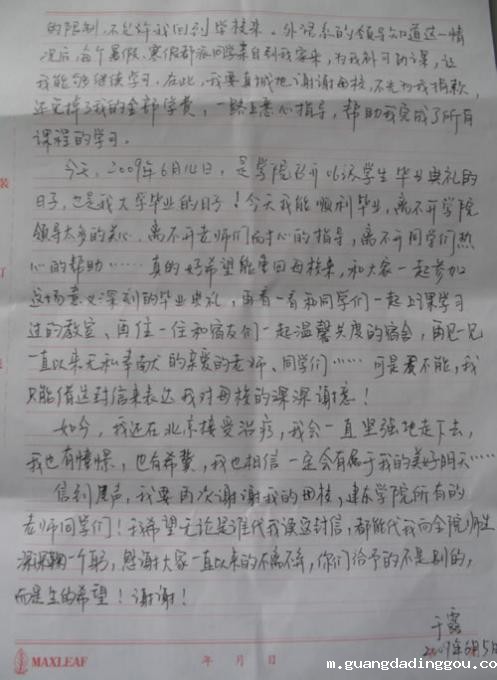 的限制,不允许我回到学校来。外语系的领导知道这一情
况后,每个暑假、寒假都派同学亲自到我家来,为我补习功课,让
我能够继续学习。在此,我要真诚地谢谢母校,不光为我捐款,
还免掉了我的全部学费,一路上悉心指导,帮助我完成了所有
课程的学习。
今天,2009年6月14日,是学院召开06级学生毕业典礼的
日子,也是我大学毕业的日子!今天我能顺利毕业,离不开学院
领导太多的关心,离不开老师们的指导,离不开同学们热
心的帮助……真的好希望能重回母校来,和大家一起参加
这场意义深刻的毕业典礼,再看一看和同学们一起上课学习
过的教室、再住一住和宿友们一起温馨共度的宿舍,再见一见
一直以来无私奉献的亲爱的老师、同学们……可是我不能,我
只能借这封信来表达我对母校的深深谢意!
如今,我还在北京接受治疗,我会一直坚强地走下去,
我也有憧憬,也有希冀,我也相信一定会有属于我的美好明天……
信到尾声,我要再次谢谢我的母校,建东学院所有的
老师同学们!我希望无论是谁代我读这封信,都能代我向全院师生
深深鞠一个躬,感谢大家一直以来的不离不弃,你们给予的不是别的,
而是生的希望!谢谢!
于露
2009年6月5日
MAXLEAF
年 月 日
m.guangdadinggou.co
装
订